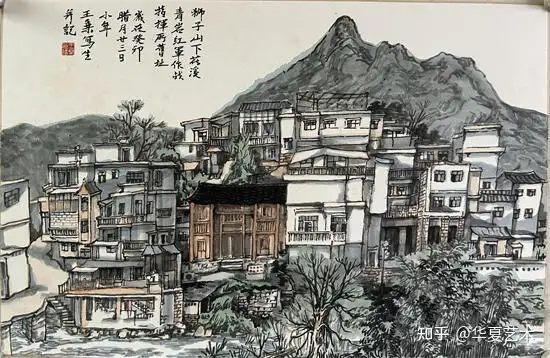 獅子山下花溪
青岩红軍作战
指揮所舊址
歲在癸卯
腊月廿三日
小年
王桑写生
并記
知乎 @华夏艺术